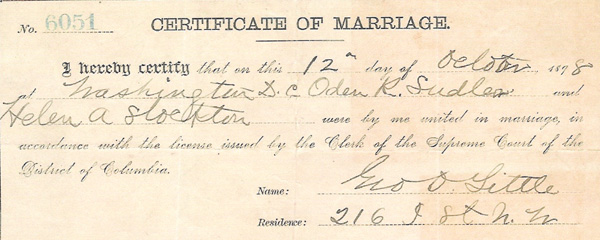 No. 6051 CERTIFICATE OF MARRIAGE.
I hereby certify that on this 12" day of October 1898
at Washington D. C Oden K. Sudler and
Helen A Stockton were by me united in marriage, in
accordance with the license issued by the Clerk of the Supreme Court of the
District of Columbia.
Name: Geo O. Little
Residence: 216 I St. N. W